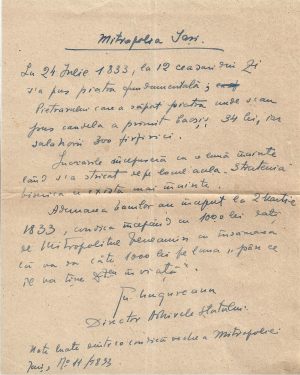 Mitropolia Iași.
La 24 Iulie 1833, la 12 ceasuri din zi
s'a pus piatra fundamentală;
Pietrarului care a săpat piatra unde s'au
pus a primit 34 lei, iar
salahorii 300
Lucrările începuseră cu o lună înainte
când s'a stricat de pe locul acela Stratenia
biserica ce exista mai înainte.
Adunarea banilor au început la 2 Martie
1833, condica începând cu 1000 lei dați
de Mitropolitul Veniamin cu însemnarea
că va da câte 1000 lei pe luna, "până ce
se va ține în viață".
Gh. Ungureanu
Director Arhivele Statului.
Note luate dintr'o condică veche a Mitropoliei
Iași, No 11/1833